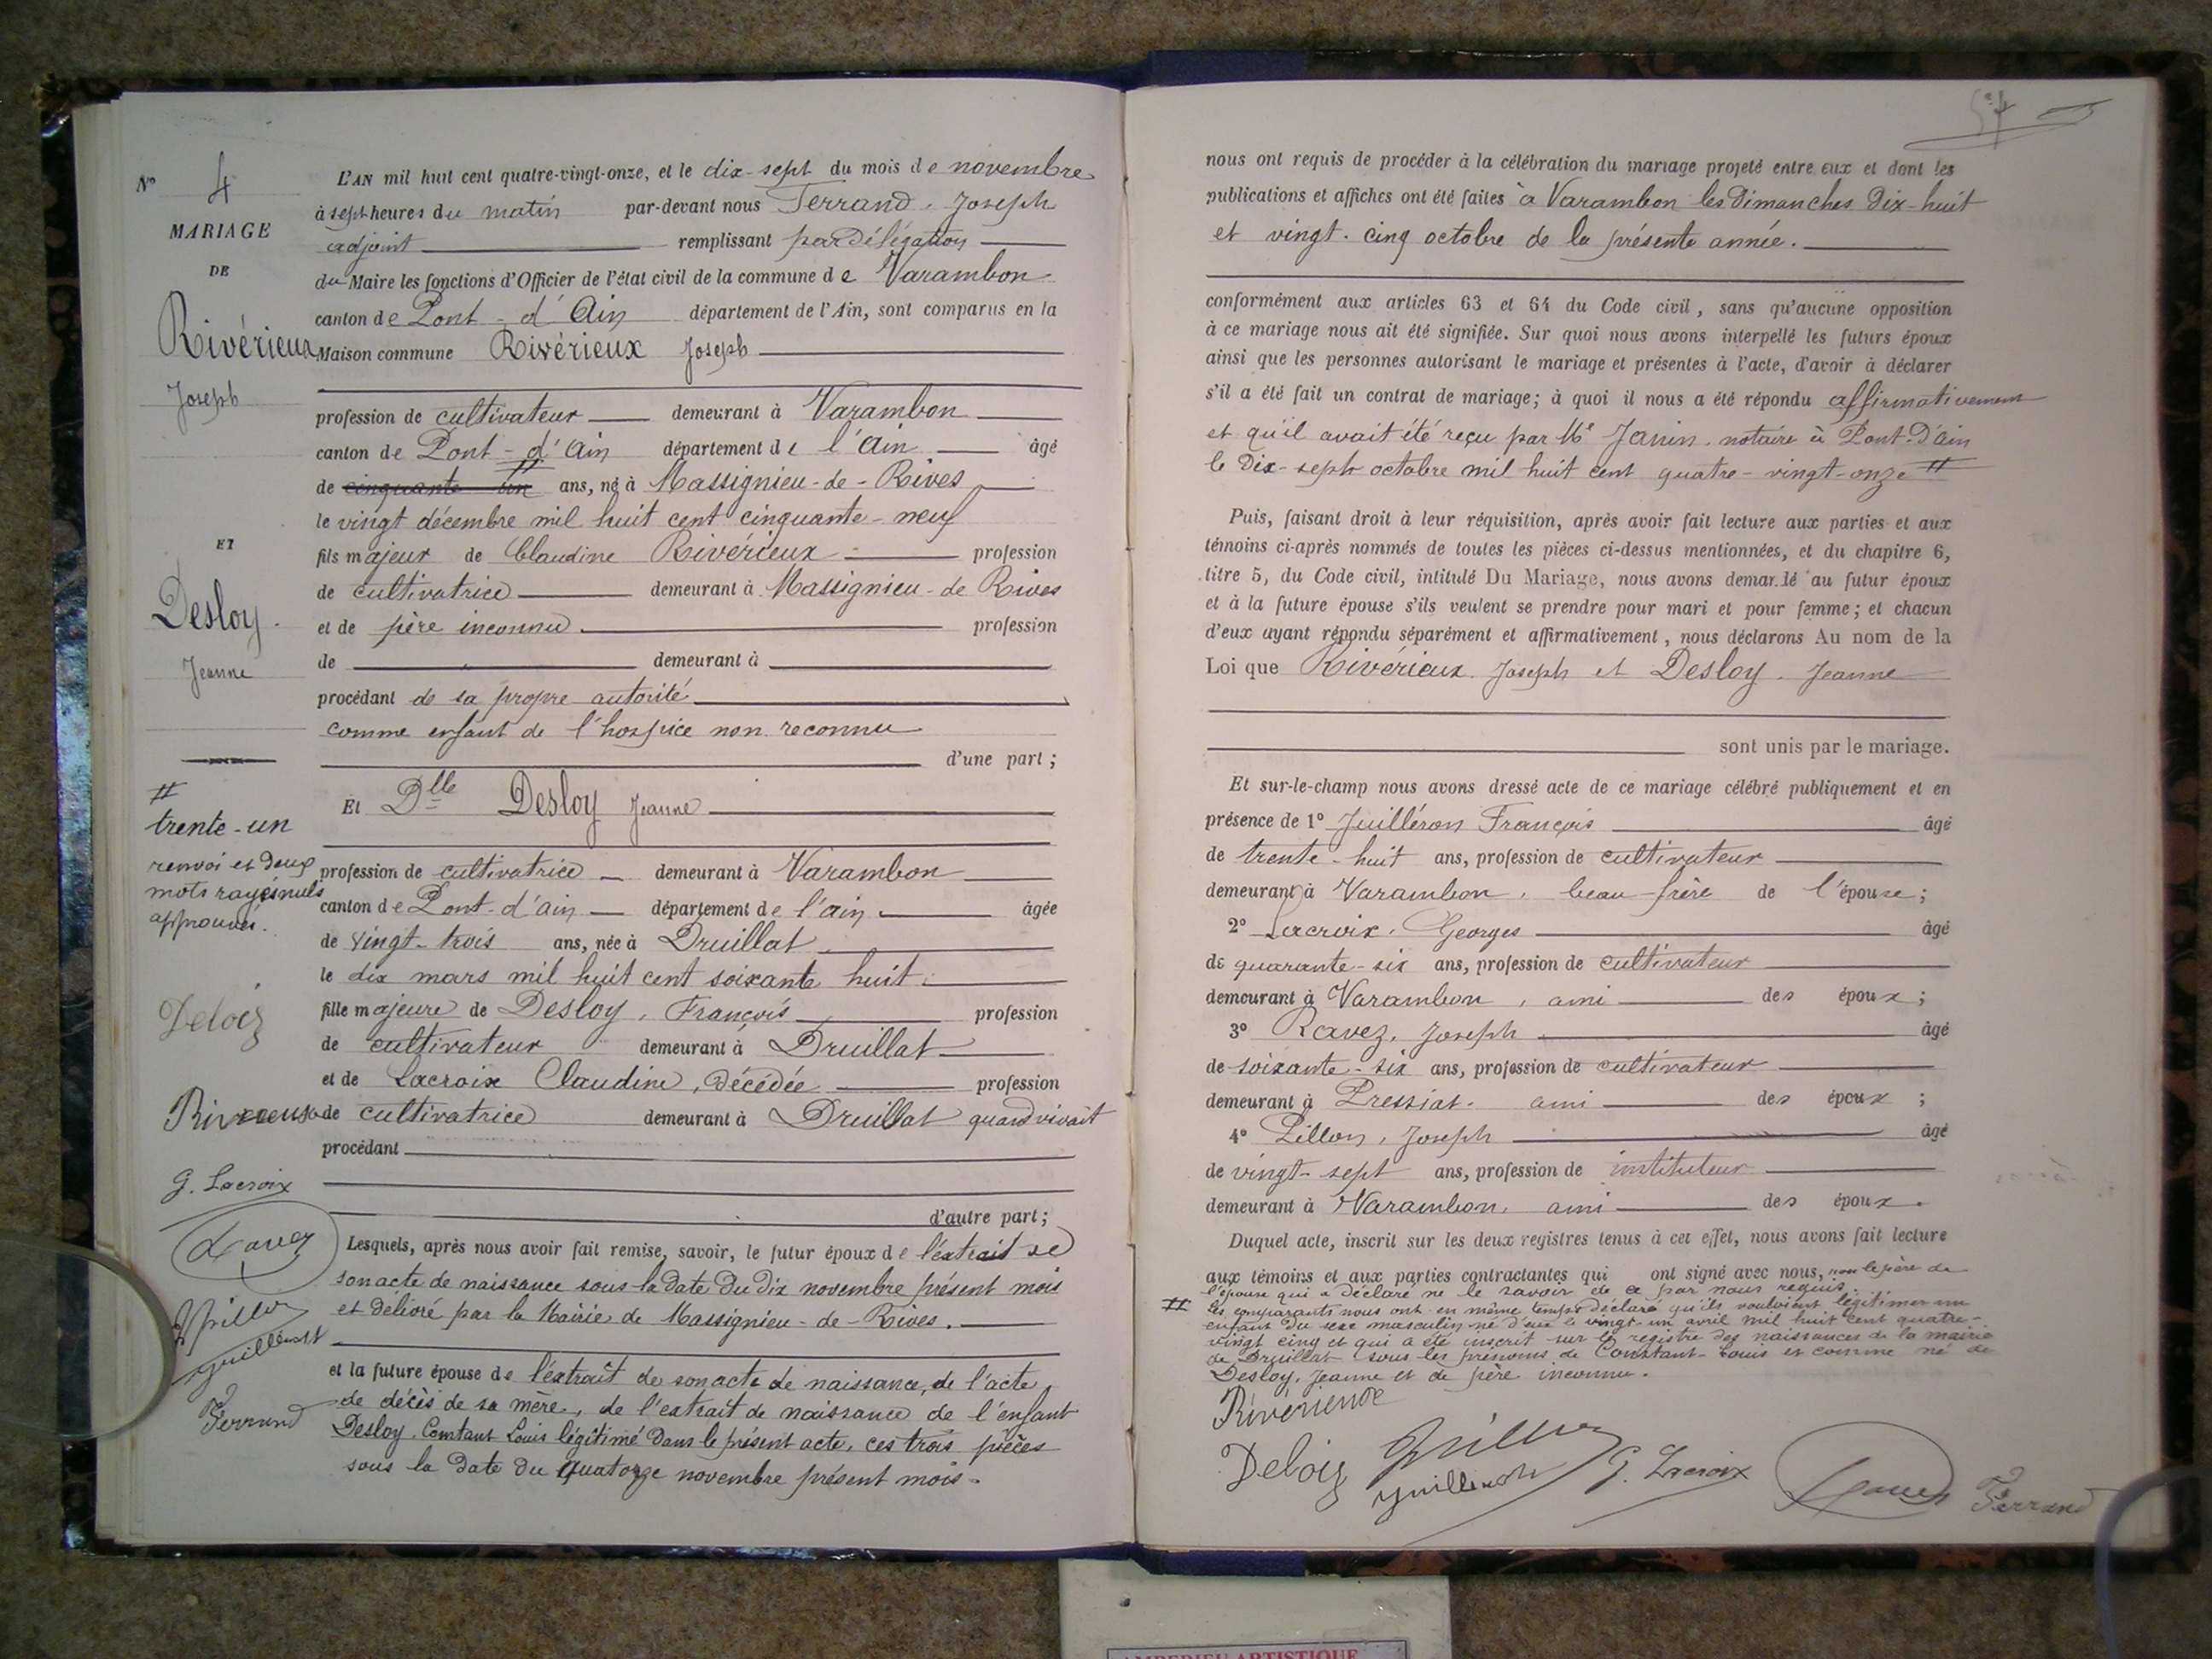 N° 4
MARIAGE
DE
Rivérieux
Joseph
ET
Desloy.
Jeanne
#
trente-un
renvoi et deux
mots rayés nuls
approuvés.
Deloiz
G. Lacroix
Ravez
Ferrand
L'AN mil huit cent quatre-vingt-onze, et le dix-sept du mois de novembre
à sept heures du matin par-devant nous Ferrand, Joseph
adjoint remplissant par délégation
du Maire les fonctions d'Officier de l'état civil de la commune de Varambon
canton de Pont-d'Ain département de l'Ain, sont comparus en la
Maison commune Rivérieux Joseph
profession de cultivateur demeurant à Varambon
canton de Pont-d'Ain département de l'Ain âgé
de cinquante un # ans, né à Massignieu-de-Rives
le vingt décembre mil huit cent cinquante-neuf
fils majeur de Claudine Rivérieux profession
de cultivatrice demeurant à Massignieu-de Rives
et de père inconnu. profession
de demeurant à
procédant de sa propre autorité
comme enfant de l'hospice non reconnu
d'une part;
Et Dlle Desloy Jeanne
profession de cultivatrice demeurant à Varambon
canton de Pont-d'ain département de l'ain âgée
de vingt-trois ans, née à Druillat
le dix mars mil huit cent soixante huit.
fille majeure de Desloy, François profession
de cultivateur demeurant à Druillat
et de Lacroix Claudine, décédée profession
de cultivatrice demeurant à Druillat quand vivait
procédant
d'autre part;
Lesquels, après nous avoir fait remise, savoir, le futur époux de l'extrait de
son acte de naissance sous la date du dix novembre présent mois
et délivré par la Mairie de Massignieu-de-Rives.
et la future épouse de l'extrait de son acte de naissance, de l'acte
de décès de sa mère, de l'extrait de naissance de l'enfant
Desloy, Constant Louis légitimé dans le présent acte, ces trois pièces
sous la date du quatorze novembre présent mois.
57
nous ont requis de procéder à la célébration du mariage projeté entre eux et dont les
publications et affiches ont été faites à Varambon les dimanches dix-huit
et vingt-cinq octobre de la présente année.
conformément aux articles 63 et 64 du Code civil, sans qu'aucune opposition
à ce mariage nous ait été signifiée. Sur quoi nous avons interpellé les futurs époux
ainsi que les personnes autorisant le mariage et présentes à l'acte, d'avoir à déclarer
s'il a été fait un contrat de mariage; à quoi il nous a été répondu affirmativement
et qu'il avait été reçu par Me Janin, notaire à Pont-d'ain
le dix-sept octobre mil huit cent quatre-vingt-onze #
Puis, faisant droit à leur réquisition, après avoir fait lecture aux parties et aux
témoins ci-après nommés de toutes les pièces ci-dessus mentionnées, et du chapitre 6,
titre 5, du Code civil, intitulé Du Mariage, nous avons demandé au futur époux
et à la future épouse s'ils veulent se prendre pour mari et pour femme; et chacun
d'eux ayant répondu séparément et affirmativement, nous déclarons Au nom de la
Loi que Rivérieux Joseph et Desloy. Jeanne
sont unis par le mariage.
Et sur-le-champ nous avons dressé acte de ce mariage célébré publiquement et en
présence de 1° Juilléron François âgé
de trente-huit ans, profession de cultivateur
demeurant à Varambon, beau-frère de l'épouse;
2° Lacroix, Georges âgé
de quarante-six ans, profession de cultivateur
demeurant à Varambon, ami des époux;
3° Ravez, Joseph âgé
de soixante-six ans, profession de cultivateur
demeurant à Pressiat. ami des époux;
4° Pillon, Joseph âgé
de vingt-sept ans, profession de instituteur
demeurant à Varambon, ami des époux.
Duquel acte, inscrit sur les deux registres tenus à cet effet, nous avons fait lecture
aux témoins et aux parties contractantes qui ont signé avec nous, non le père de
l'épouse qui a déclaré ne le savoir de ce par nous requis.
# Les comparants nous ont en même temps déclaré qu'ils voulaient légitimer un
enfant du sexe masculin né d'eux le vingt-un avril mil huit cent quatre-
vingt cinq et qui a été inscrit sur le registre des naissances de la mairie
de Druillat sous les prénoms de Constant-Louis et comme né de
Desloy, Jeanne et de père inconnu.
Rivérieux
Deloiz G. Lacroix Ravez Ferrand
AMBERIEU ARTISTIQUE